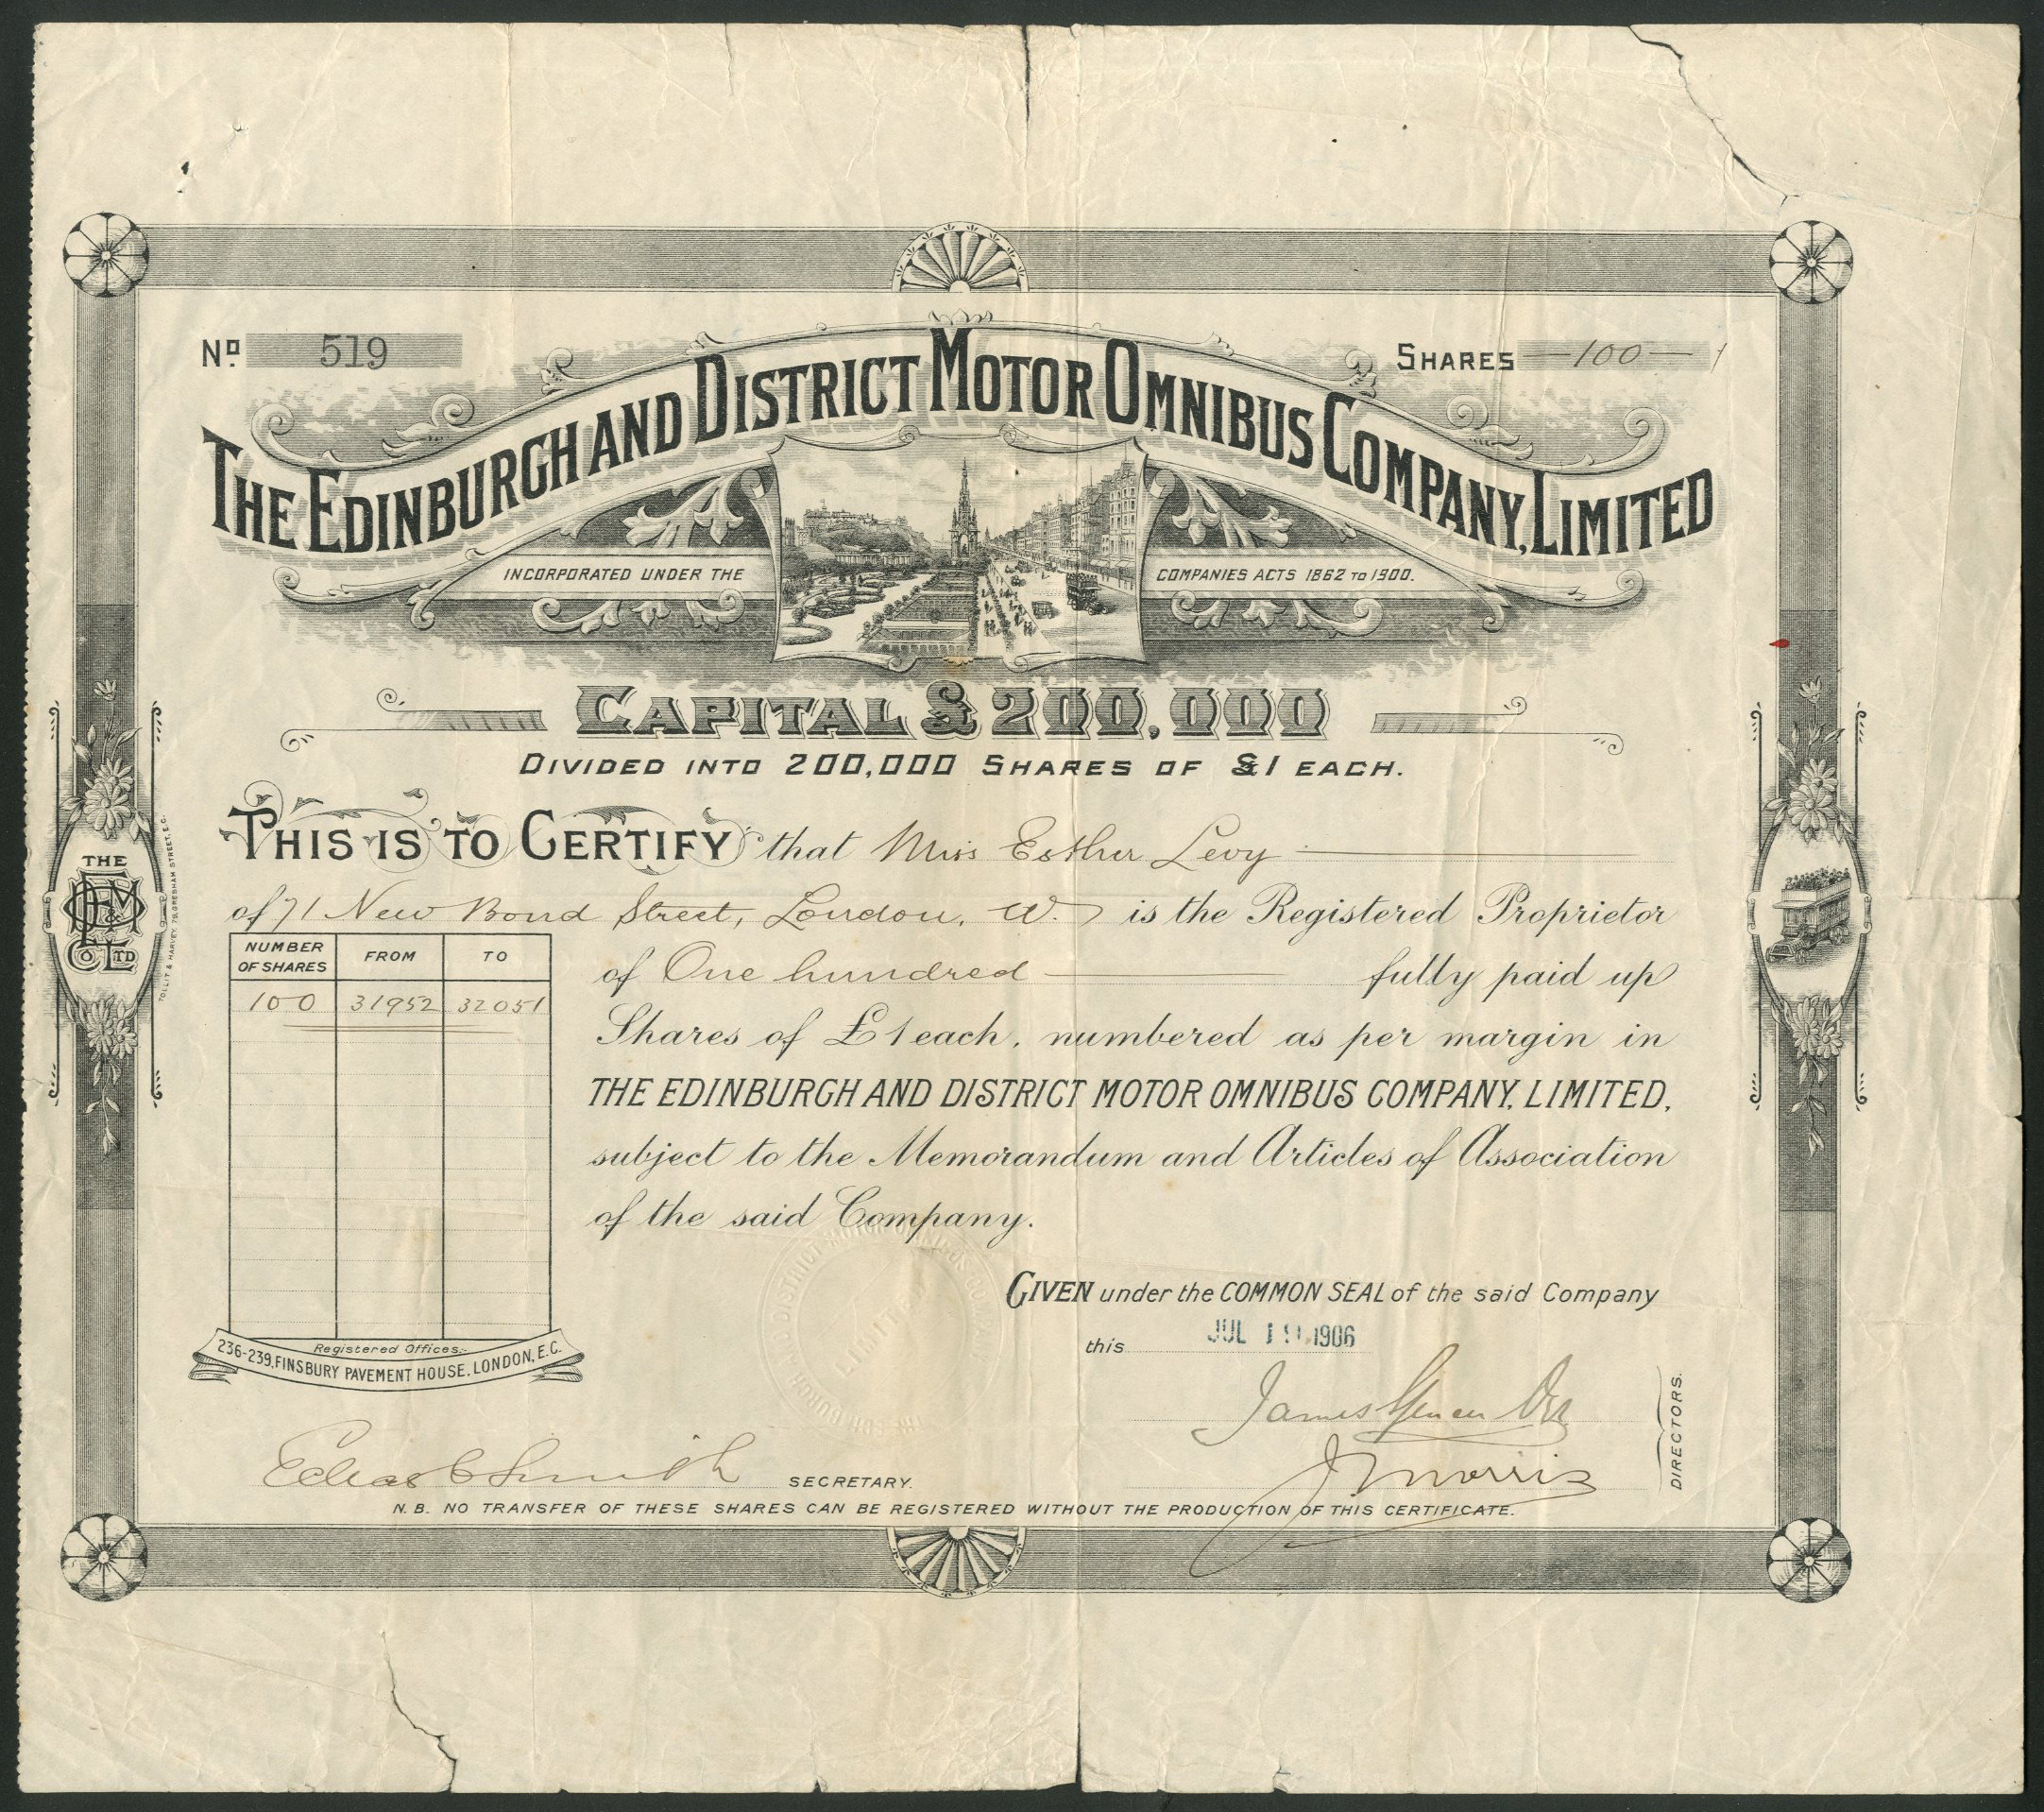 No. 519
SHARES —100—
THE EDINBURGH AND DISTRICT MOTOR OMNIBUS COMPANY, LIMITED
INCORPORATED UNDER THE COMPANIES ACTS 1862 TO 1900.
CAPITAL £200,000
DIVIDED INTO 200,000 SHARES OF £1 EACH.
THIS IS TO CERTIFY that Miss Esther Levy
of 71 New Bond Street, London, W. is the Registered Proprietor
of One hundred fully paid up
Shares of £1 each, numbered as per margin in
THE EDINBURGH AND DISTRICT MOTOR OMNIBUS COMPANY, LIMITED,
subject to the Memorandum and Articles of Association
of the said Company.
NUMBER OF SHARES FROM TO
100 31952 32051
THE
CO LTD
TOLLIT & HARVEY, 79, GRESHAM STREET, E.C.
GIVEN under the COMMON SEAL of the said Company
this JUL 19 1906
Registered Offices:-
236-239, FINSBURY PAVEMENT HOUSE, LONDON, E.C.
James Spencer
J Morris
DIRECTORS.
Smith SECRETARY.
N.B. NO TRANSFER OF THESE SHARES CAN BE REGISTERED WITHOUT THE PRODUCTION OF THIS CERTIFICATE.